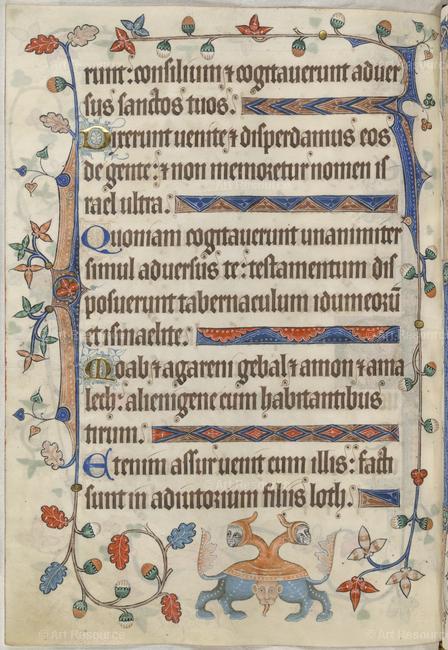 runt: consilium ⁊ cogitauerunt aduer
sus sanctos tuos.
Dixerunt uenite ⁊ disperdamus eos
de gente: ⁊ non memoretur nomen is
rael ultra.
Quoniam cogitauerunt unanimiter
simul aduersus te: testamentum dis
posuerunt tabernaculum idumeorū
et ismaelite.
Moab ⁊ agareni gebal ⁊ amon ⁊ ama
lech: alienigene cum habitantibus
tirum.
Etenim assur uenit cum illis: facti
sunt in adiutorium filiis loth.
© Art Resource
© Art Resource